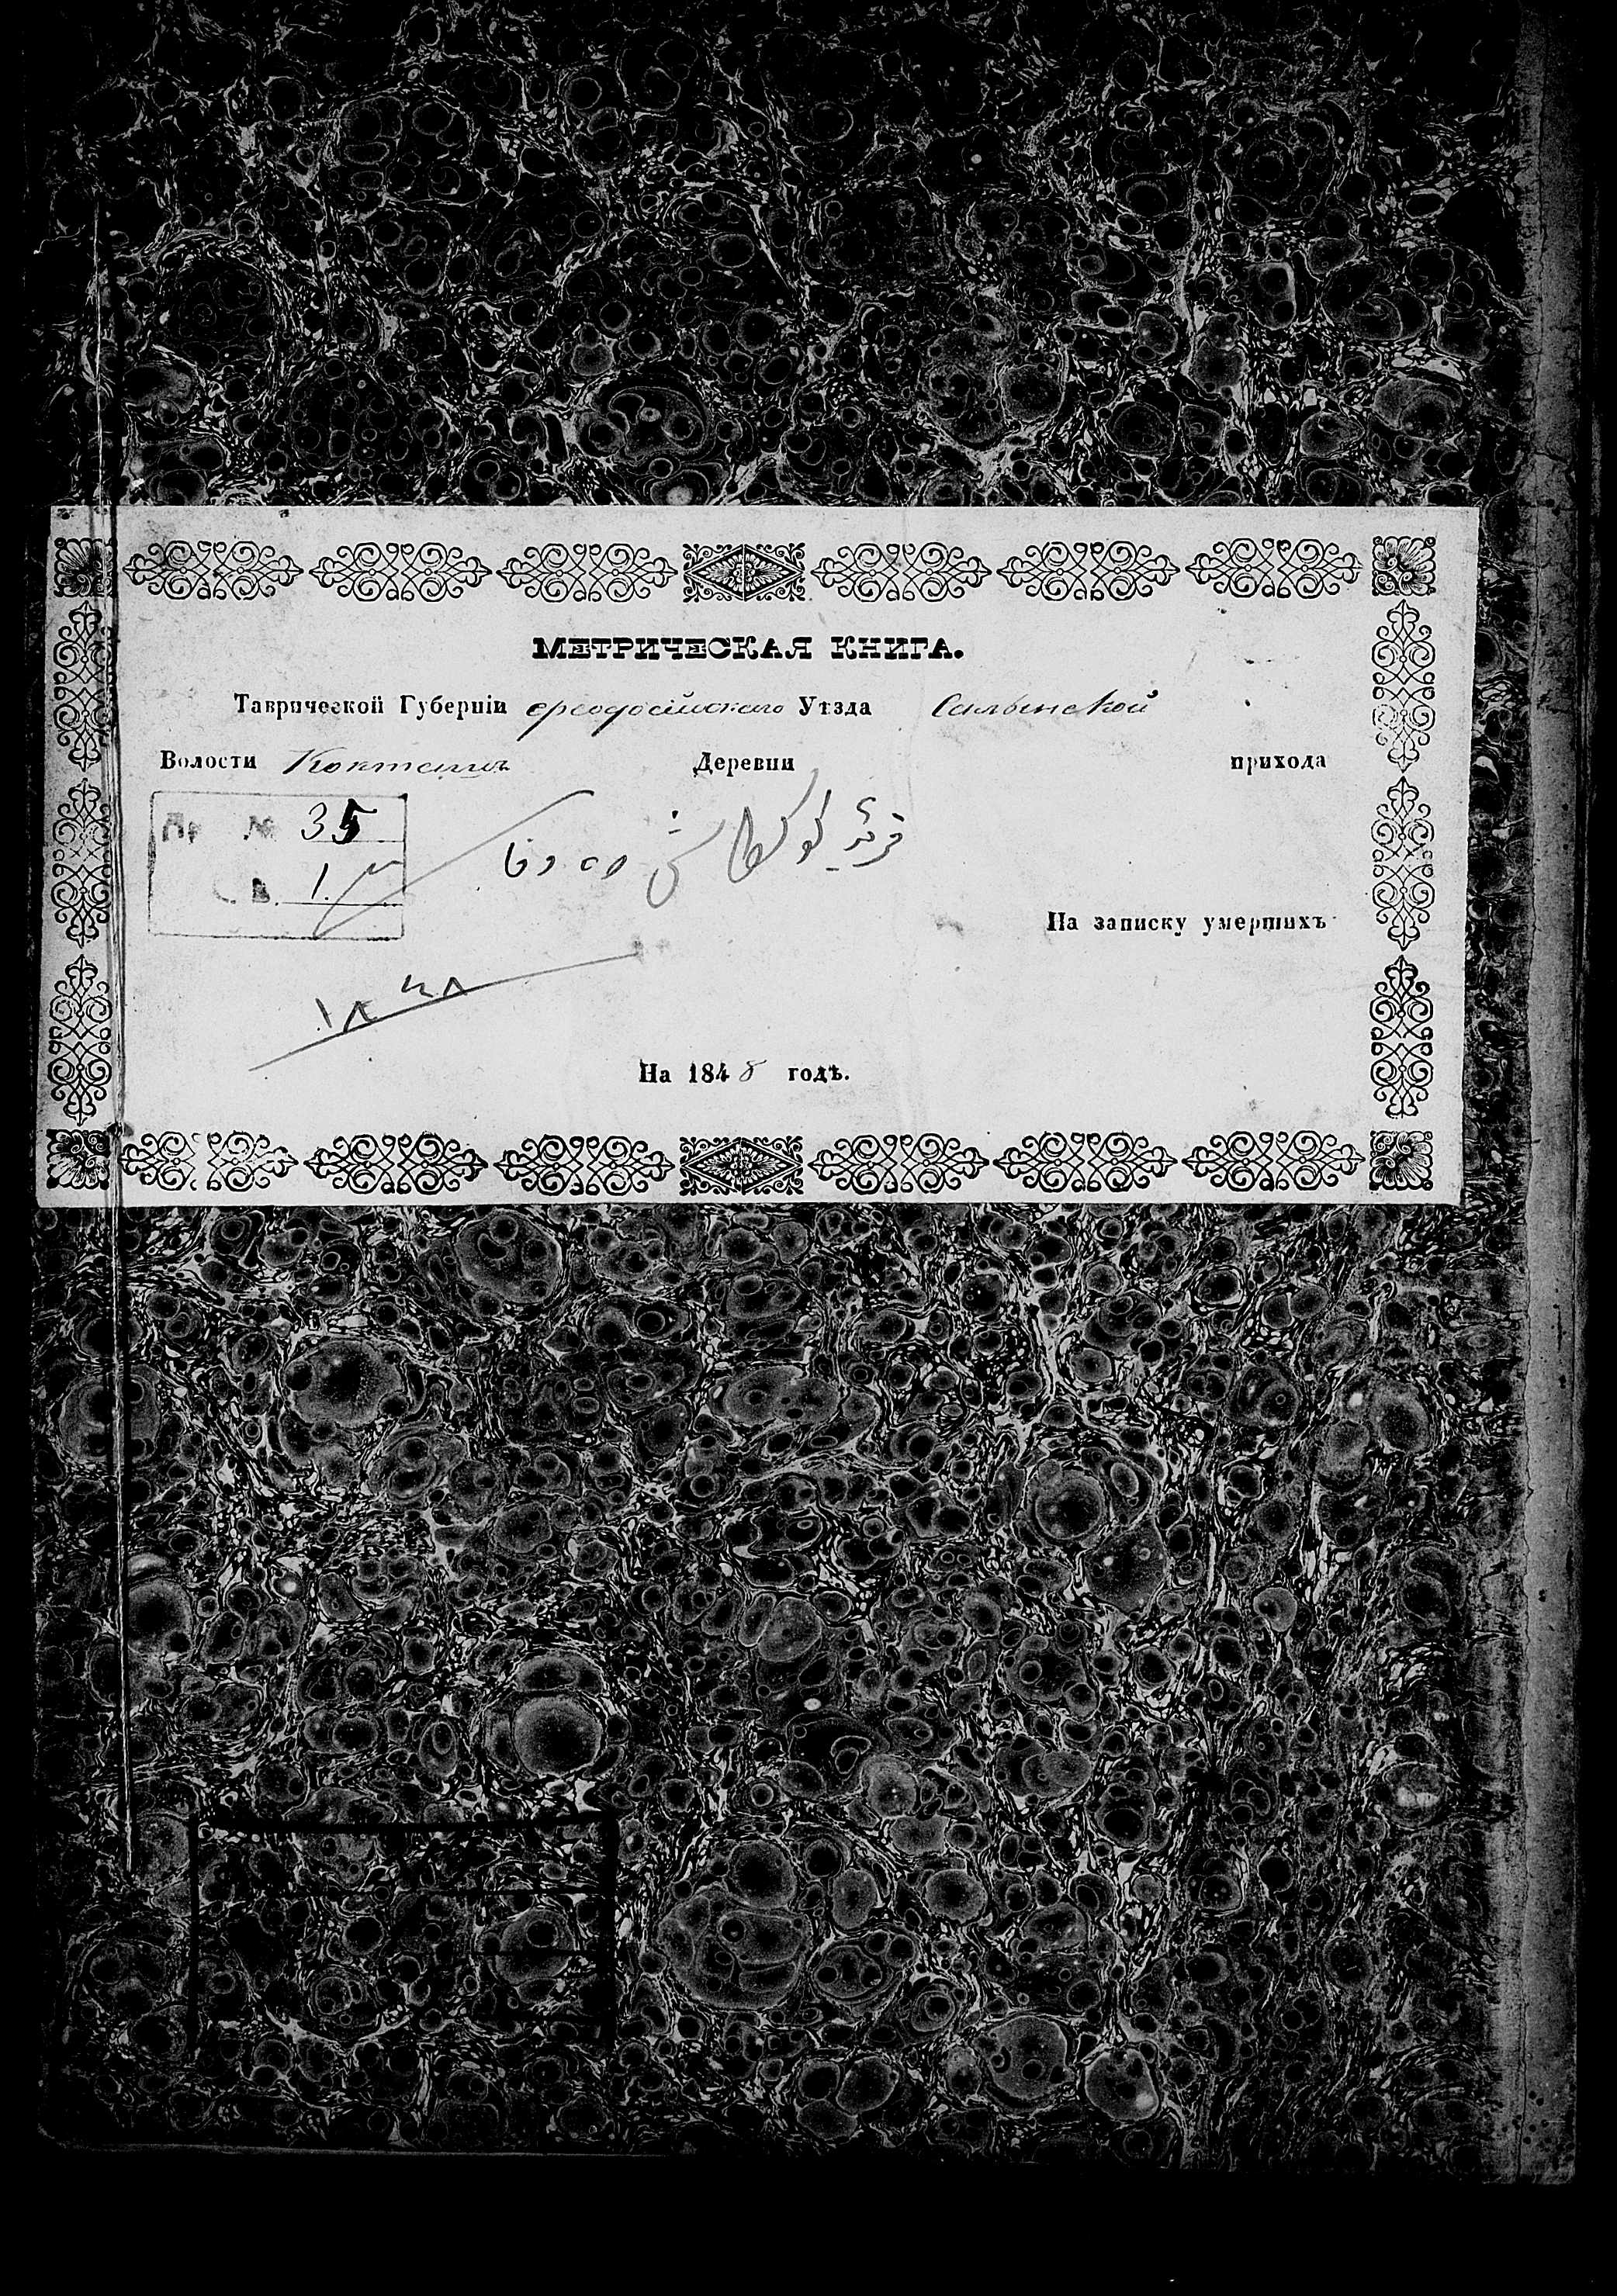 МЕТРИЧЕСКАЯ КНИГА.
Таврической Губерніи Ѳеодосійскаго Уѣзда Салынской
Волости Кокташъ Деревни прихода
Пр № 35
Св. 1.
قريۀ كوكطاش ده وفا
На записку умершихъ
١٨٤٨
На 1848 годъ.